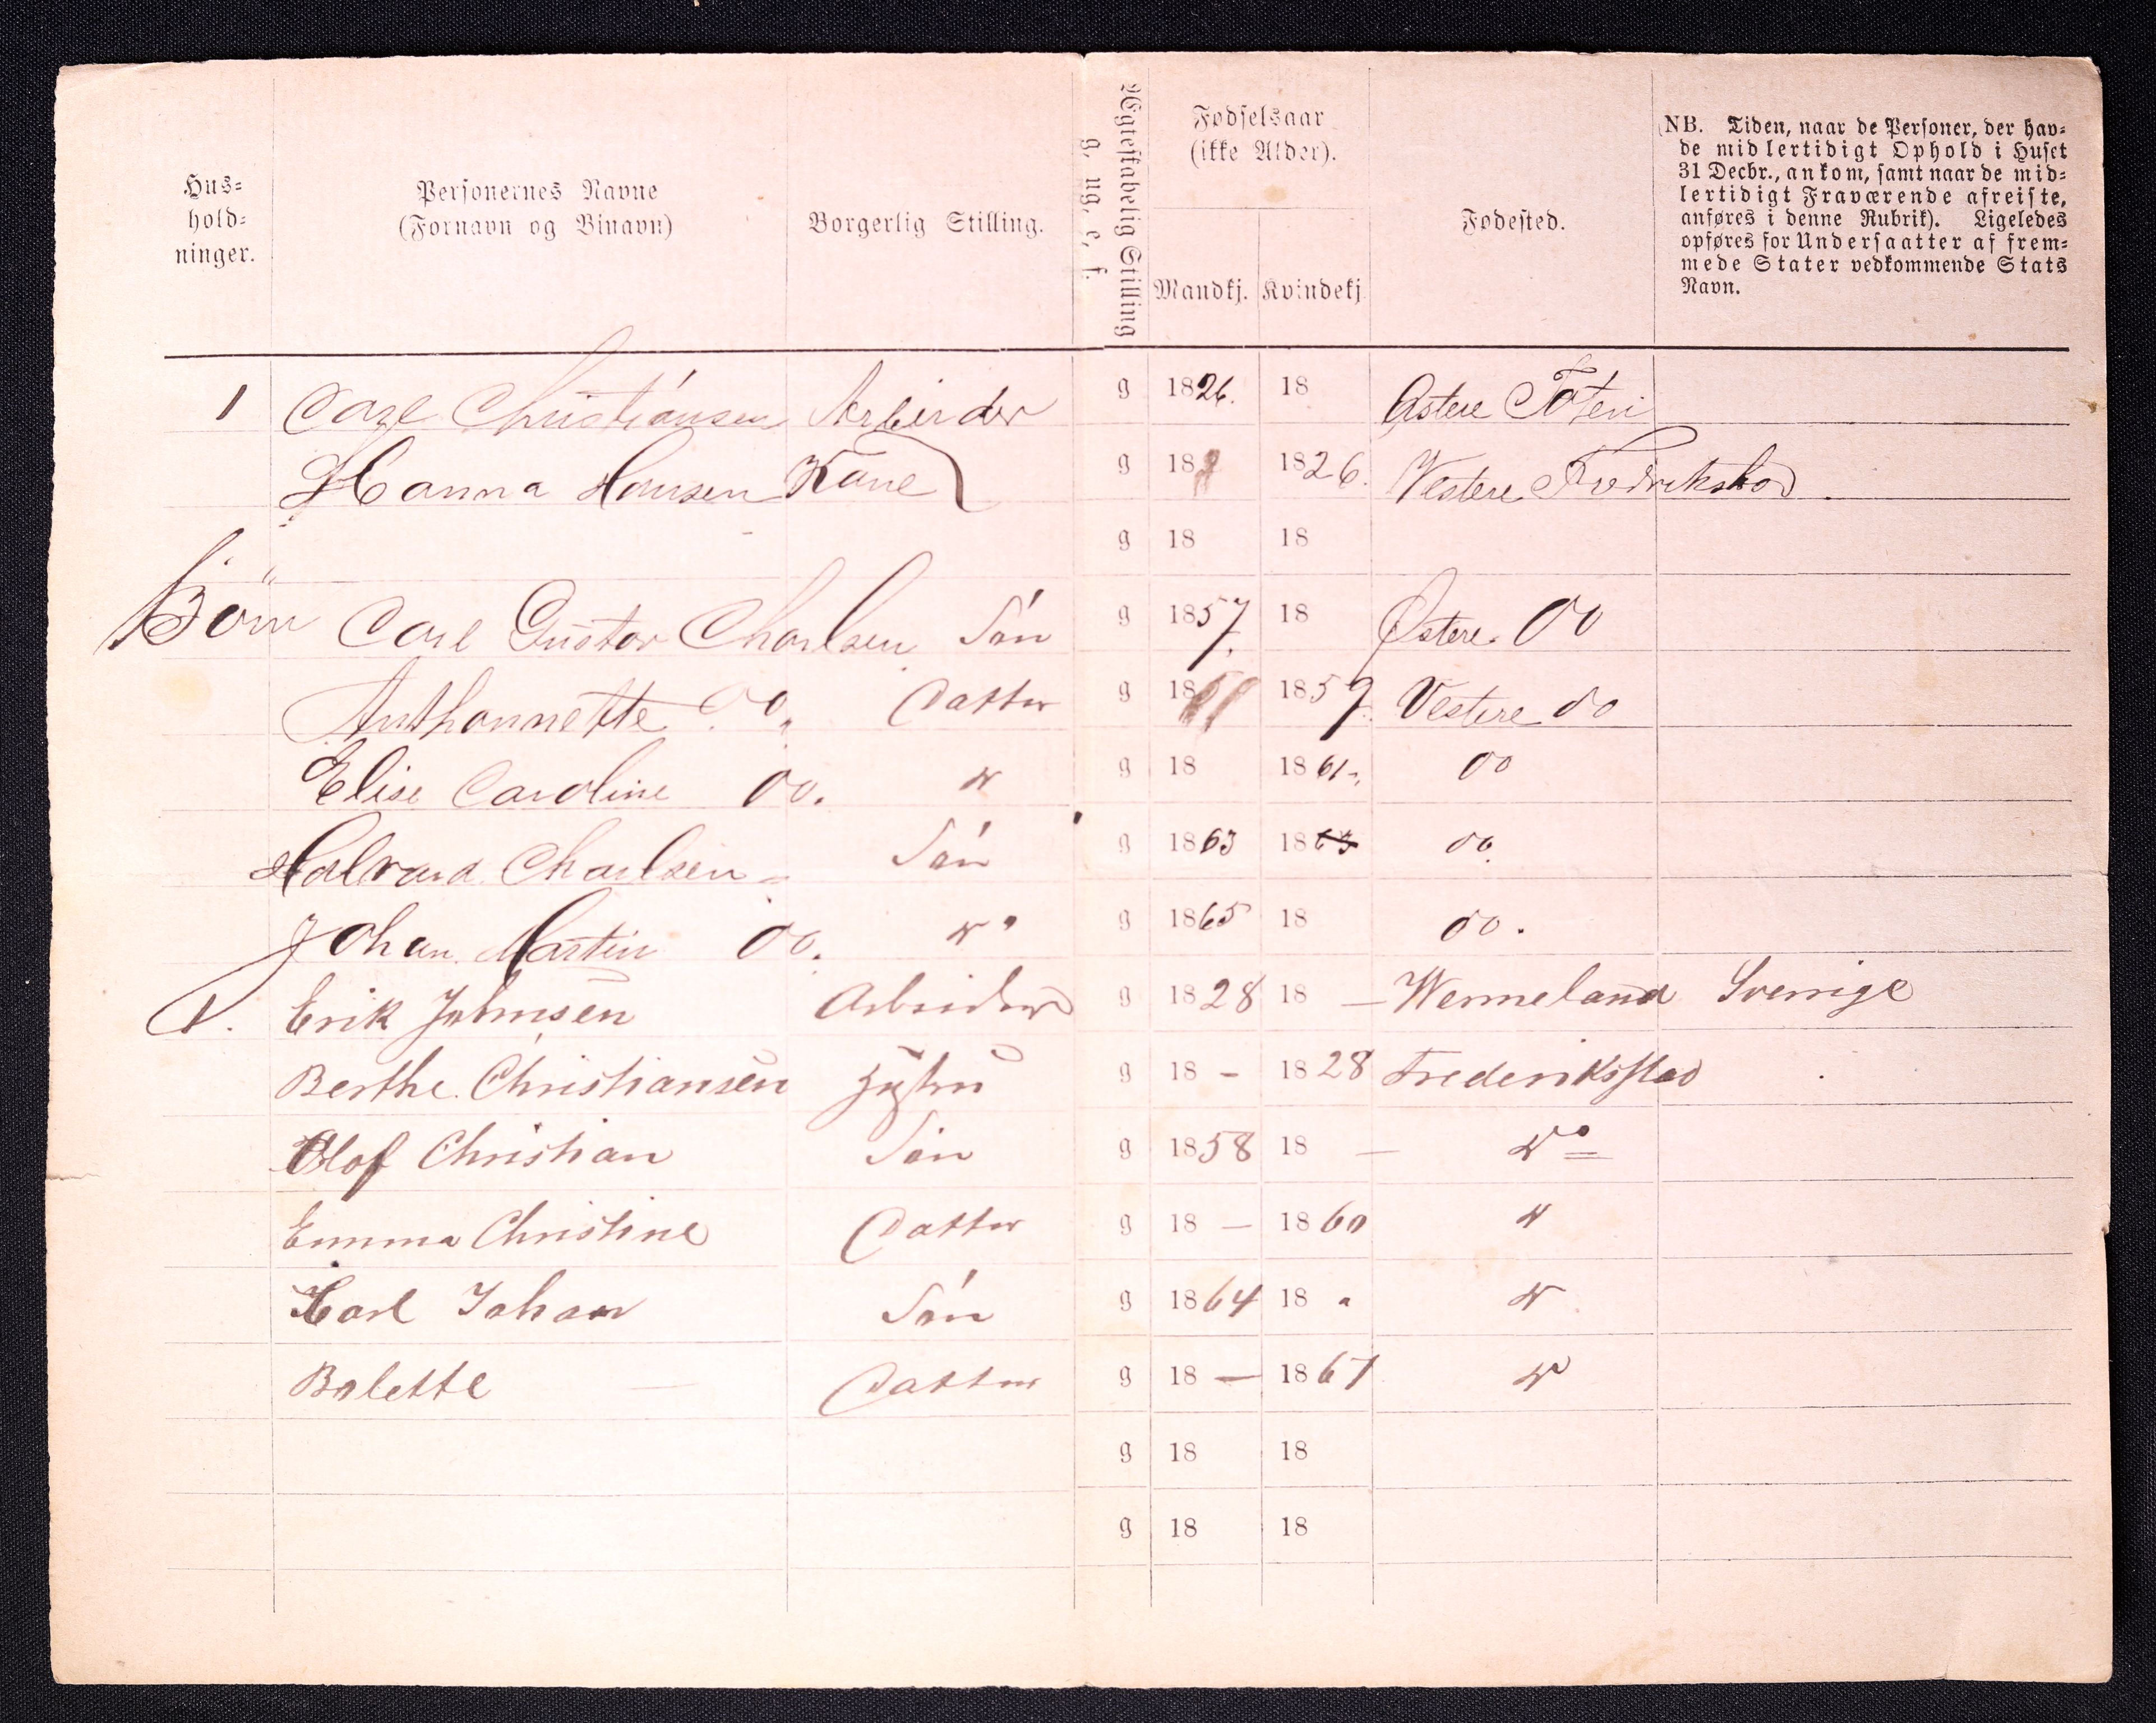 Hus-
hold-
ninger.
Personernes Navne
(Fornavn og Binavn)
Borgerlig Stilling.
Ægteskabelig Stilling
g, ug, e, f.
Fødselsaar
(ikke Alder).
Mandkj. Kvindekj
Fødested.
NB. Tiden, naar de Personer, der hav-
de midlertidigt Ophold i Huset
31 Decbr., ankom, samt naar de mid-
lertidigt Fraværende afreiste,
anføres i denne Rubrik). Ligeledes
opføres for Undersaatter af frem-
mede Stater vedkommende Stats
Navn.
1 Carl Christiansen Arbeider g 1826. 18 Østere Toten
Hanna Hansen Kone g 18 1826. Vestere Fredrikstad.
g 18 18
Börn Carl Gustav Charlsen Sön g 1857. 18 Østere do
Anthonnette do. Datter g 18 1859. Vestere do
Elise Caroline do. " g 18 1861. do
Halvard Charlsen Sön g 1863 1863 do.
Johan Martin do. " g 1865 18 do.
1. Erik Johnsen Arbeider g 1828 18 – Wermeland Sverrige
Berthe Christiansen Hustru g 18 – 1828 Frederiksstad
Olof Christian Sön g 1858 18 — do
Emma Christine Datter g 18 — 1860 "
Karl Johan Sön g 1864 18 "
Bolette — Datter g 18 — 1867 "
g 18 18
g 18 18